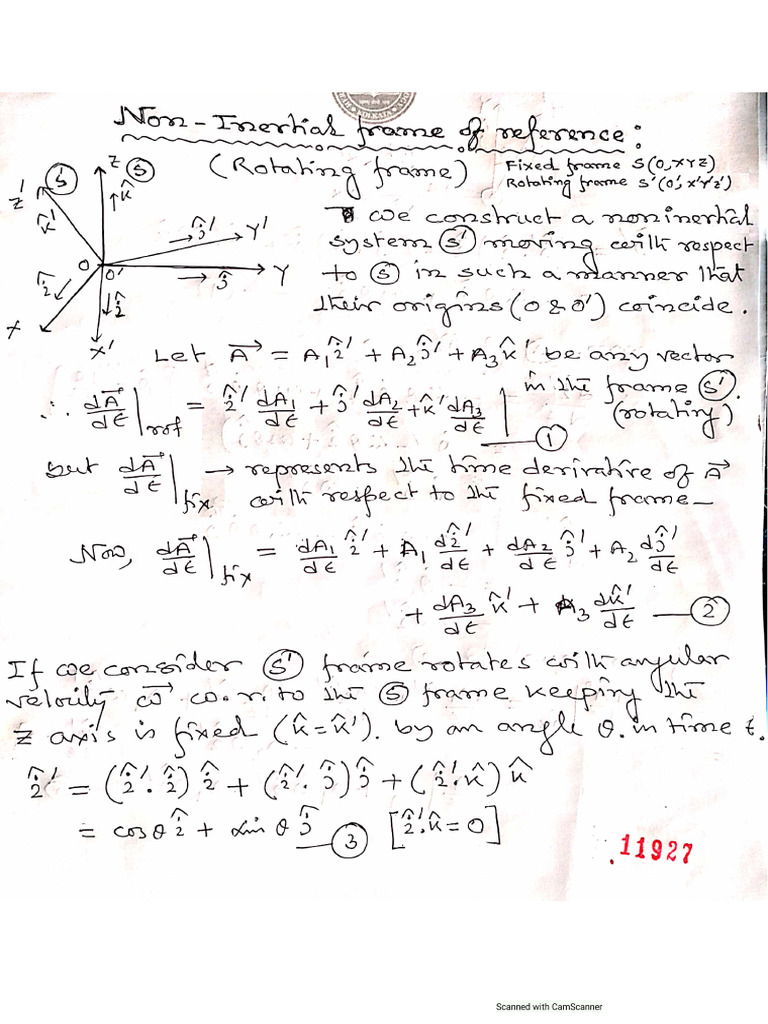 Non-Inertial frame of reference:
(Rotating frame)
Fixed frame S(O,XYZ)
Rotating frame S'(O',X'Y'Z')
Z' S' Z S
k̂' k̂
ĵ' Y'
O O' ĵ Y
î î
X X'
We construct a noninertial
system S' moving with respect
to S in such a manner that
their origins (O & O') coincide.
Let A⃗ = A₁î' + A₂ĵ' + A₃k̂' be any vector
in the frame S'.
(rotating)
∴ dA⃗/dt|rot = î' dA₁/dt + ĵ' dA₂/dt + k̂' dA₃/dt | — ①
but dA⃗/dt|fix → represents the time derivative of A⃗
with respect to the fixed frame—
Now, dA⃗/dt|fix = dA₁/dt î' + A₁ dî'/dt + dA₂/dt ĵ' + A₂ dĵ'/dt
+ dA₃/dt k̂' + A₃ dk̂'/dt — ②
If we consider S' frame rotates with angular
velocity ω⃗ w.r.to the S frame keeping the
Z axis is fixed (k̂=k̂'). by an angle θ. in time t.
î' = (î'.î)î + (î'.ĵ)ĵ + (î'.k̂)k̂
= cosθ î + sinθ ĵ — ③ [î'.k̂=0]
.11927
Scanned with CamScanner